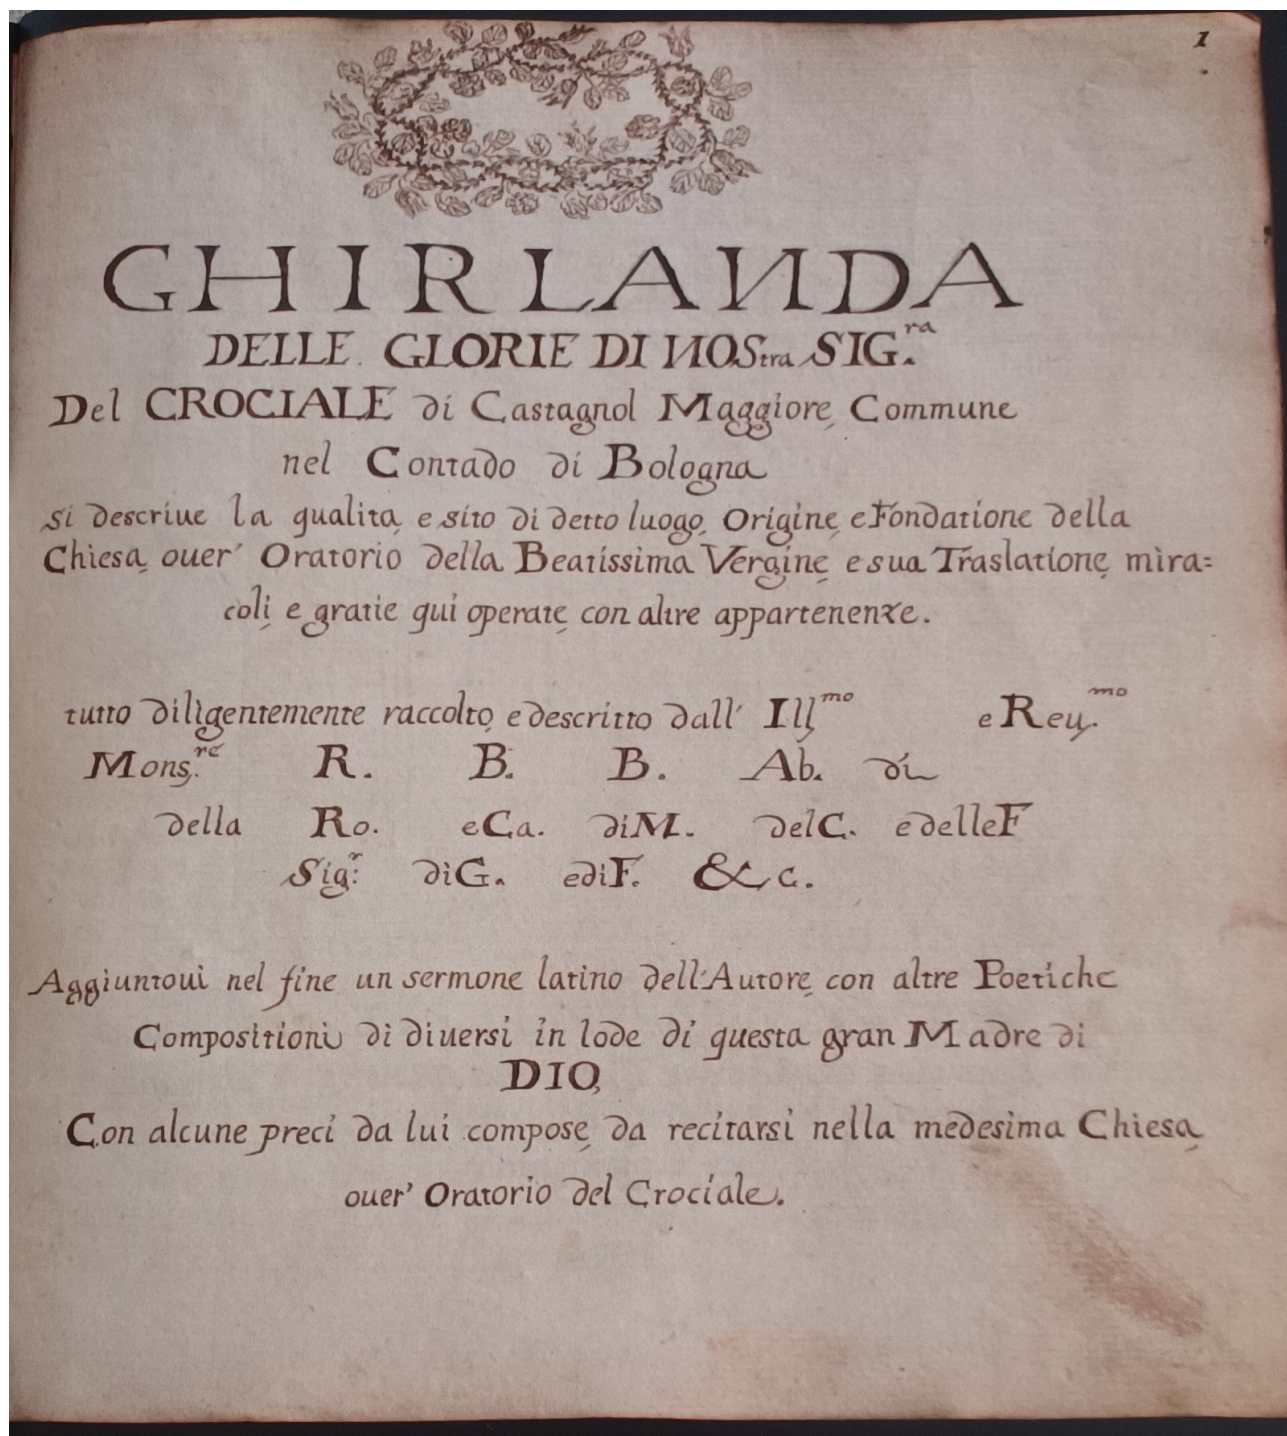 1
GHIRLANDA
DELLE GLORIE DI NOStra SIG.ra
Del CROCIALE di Castagnol Maggiore Commune
nel Contado di Bologna
si descriue la qualita, e sito di detto luogo, Origine, e Fondatione della
Chiesa, ouer' Oratorio della Beatissima Vergine, e sua Traslatione, mira=
coli, e gratie qui operate, con altre appartenenze.
tutto diligentemente raccolto, e descritto dall' Ill.mo e Reu.mo
Mons.re R. B. B. Ab. di
della Ro. e Ca. di M. del C. e delle F
Sig.r di G. e di F. & c.
Aggiuntoui nel fine un sermone latino dell'Autore, con altre Poetiche
Compositioni di diuersi in lode di questa gran Madre di
DIO,
Con alcune preci da lui compose, da recitarsi nella medesima Chiesa,
ouer' Oratorio del Crociale.